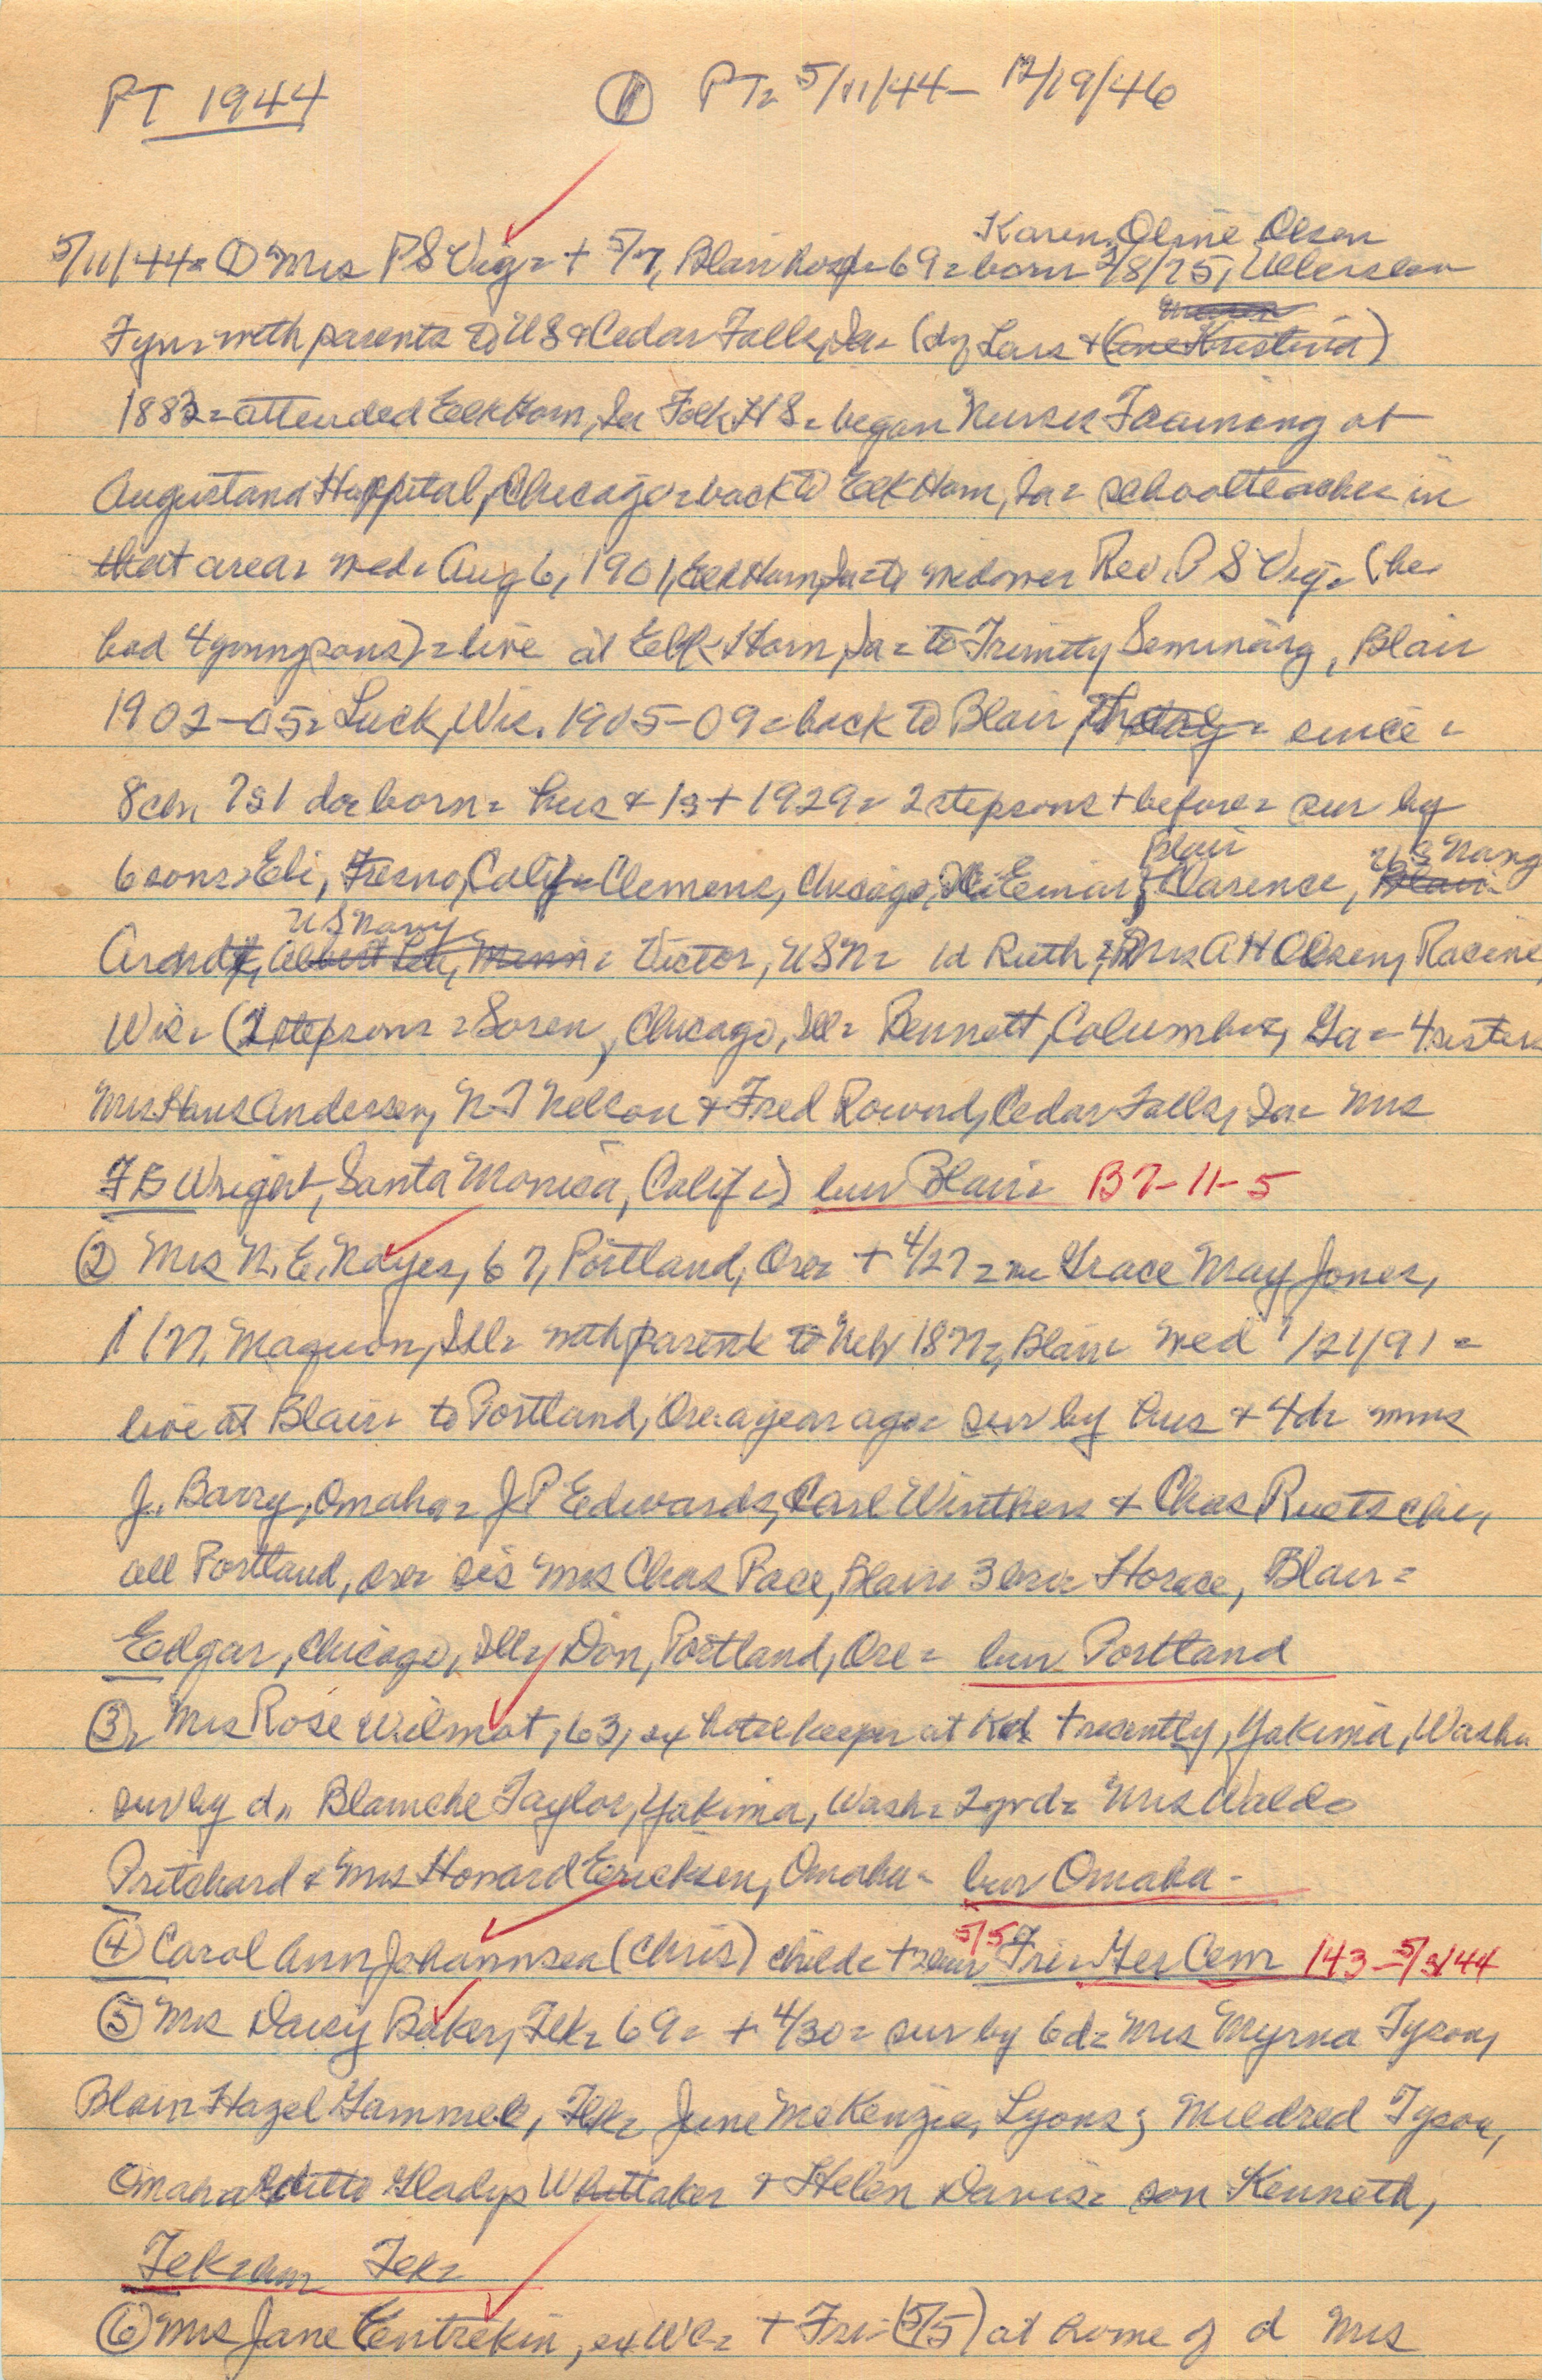 PT 1944 ① PT= 5/11/44- 12/19/46
Karen Oline Olsen
5/11/44= ① Mrs P S Vig= + 5/7, Blair hosp= 69= born 2/8/75, Ullerslev
Maren
Fyn= with parents to US & Cedar Falls, Ia= (dg Lars & (Ane Kristina)
1883= attended Elk Horn, Ia Folk H S= began Nurses Training at
Augustana Hospital, Chicago= back to Elk Horn, Ia= schoolteacher in
that area= wed= Aug 6, 1901, Elk Horn, Ia= to widower Rev. P S Vig= (he
had 4 young sons)= live at Elk Horn, Ia= to Trinity Seminary, Blair
1902-05= Luck, Wis. 1905-09= back to Blair, since=
8 ch. 7s 1 da born= hus & 1s + 1929= 2 stepsons + before= sur by
Blair US Navy
6 sons= Eli, Fresno, Calif= Clemens, Chicago, Ill= Einar, Clarence, Blair=
US Navy=
Arnold, Albert Lea, Minn= Victor, USN= 1d Ruth, Mrs A H Olsen, Racine,
Wis= (2 stepsons= Soren, Chicago, Ill= Bennett, Columbus, Ga=- 4 sisters
Mrs Hans Andersen, N T Nelson & Fred Rowed, Cedar Falls, Ia= Mrs
F B Wright, Santa Monica, Calif=) bur Blair= B7-11-5
② Mrs N. E. Noyes, 67, Portland, Ore= + 4/27= Grace May Jones,
Maquon, Ill= with parents to Neb 1877, Blair= wed 1/21/91=
live at Blair= to Portland, Ore= a year ago= sur by hus & 4d= mms
J. Barry, Omaha= J P Edwards, Carl Winthers & Chas Ruetschi,
all Portland, Ore= sis Mrs Chas Pace, Blair= 3 bro= Horace, Blair=
Edgar, Chicago, Ill, Don, Portland, Ore= bur Portland
③ Mrs Rose Wilmot, 63, ex hotel keeper at Ked + recently, Yakima, Wash=
sur by d= Blanche Taylor, Yakima, Wash= 2 grd= Mrs Waldo
Pritchard & Mrs Howard Ericksen, Omaha= bur Omaha-
5/5
④ Carol Ann Johannsen (Chris) child= + bur Fri= Her Cem 143-5/3/44
⑤ Mrs Daisy Baker, Tek= 69= + 4/30= sur by 6d= Mrs Myrna Tyson,
Blair= Hazel Gammel, Tek= June McKenzie, Lyons; Mildred Tyson,
Omaha= ditto Gladys Whittaker & Helen Davis= son Kenneth,
Tek= bur Tek=
⑥ Mrs Jane Entrekin, ex WC= + Fri (5/5) at home of d Mrs